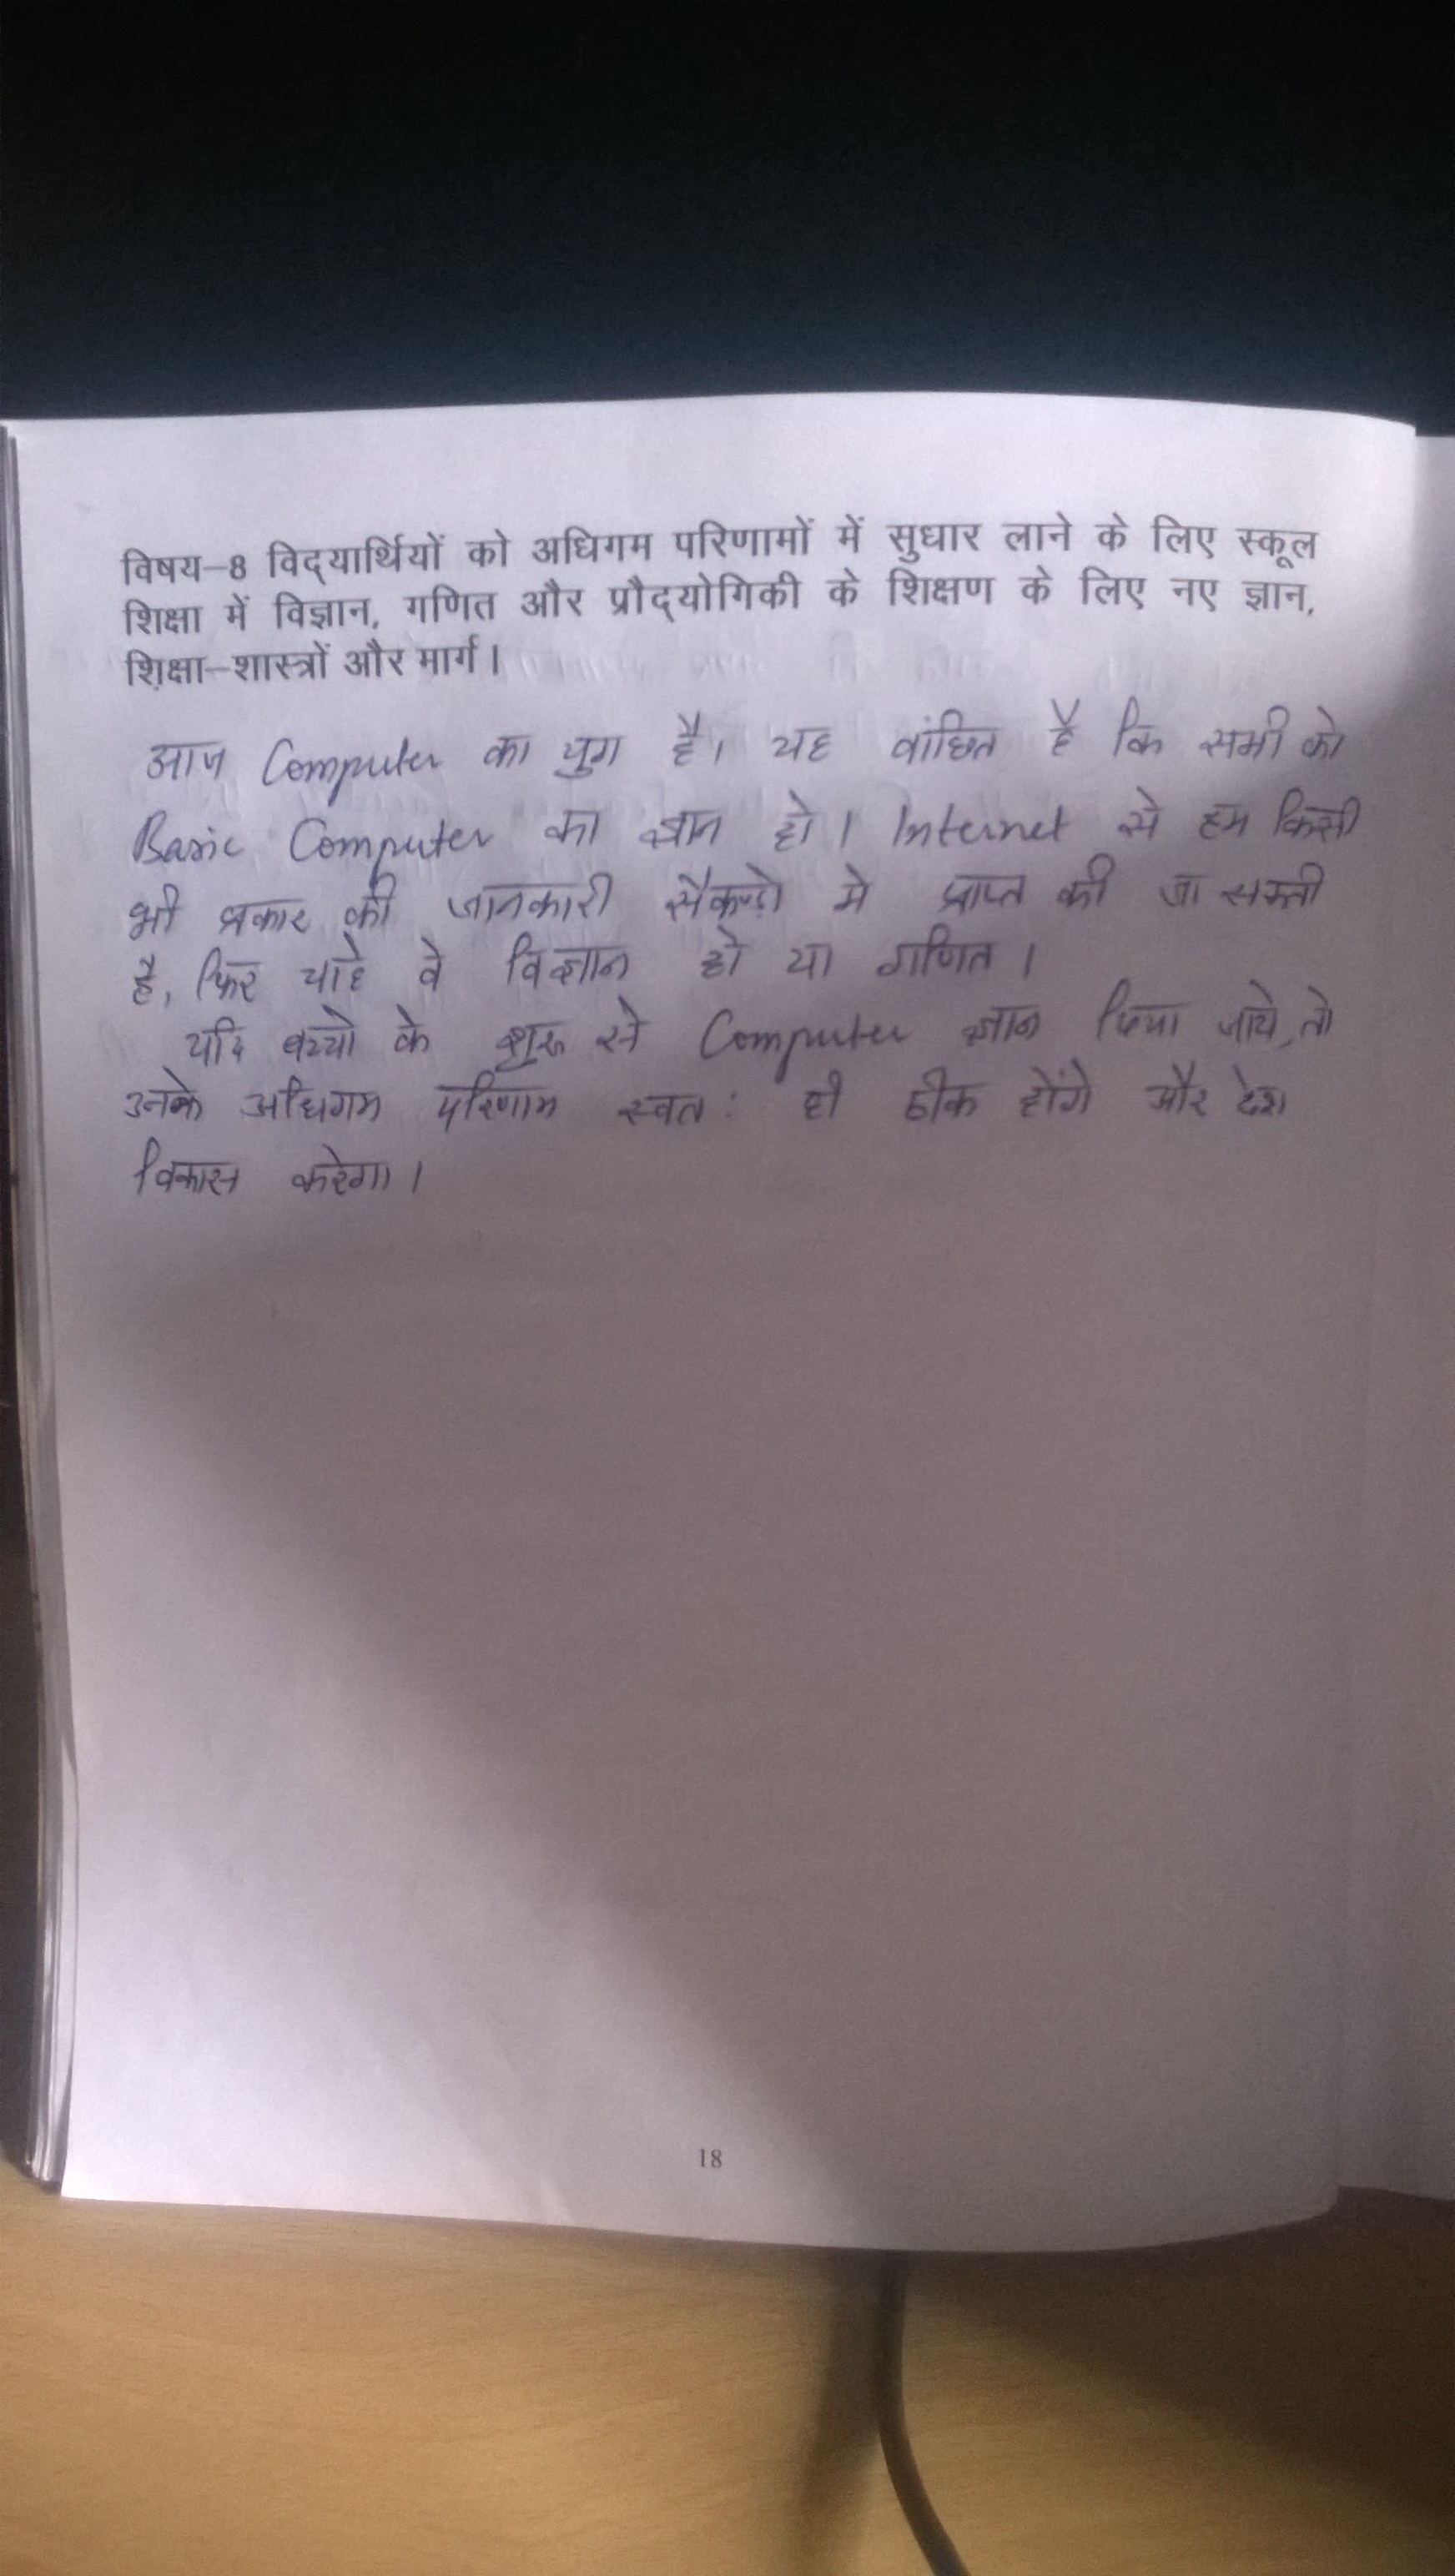 विषय–8 विद्यार्थियों को अधिगम परिणामों में सुधार लाने के लिए स्कूल
शिक्षा में विज्ञान, गणित और प्रौद्योगिकी के शिक्षण के लिए नए ज्ञान,
शिक्षा–शास्त्रों और मार्ग।
आज Computer का युग है। यह वांछित है कि सभी को
Basic Computer का ज्ञान हो। Internet से हम किसी
भी प्रकार की जानकारी सैकण्डो मे प्राप्त की जा सक्ती
है, फिर चाहे वे विज्ञान हो या गणित।
यदि बच्चो के शुरू से Computer ज्ञान दिया जाये, तो
उनके अधिगम परिणाम स्वत: ही ठीक होंगे और देश
विकास करेगा।
18